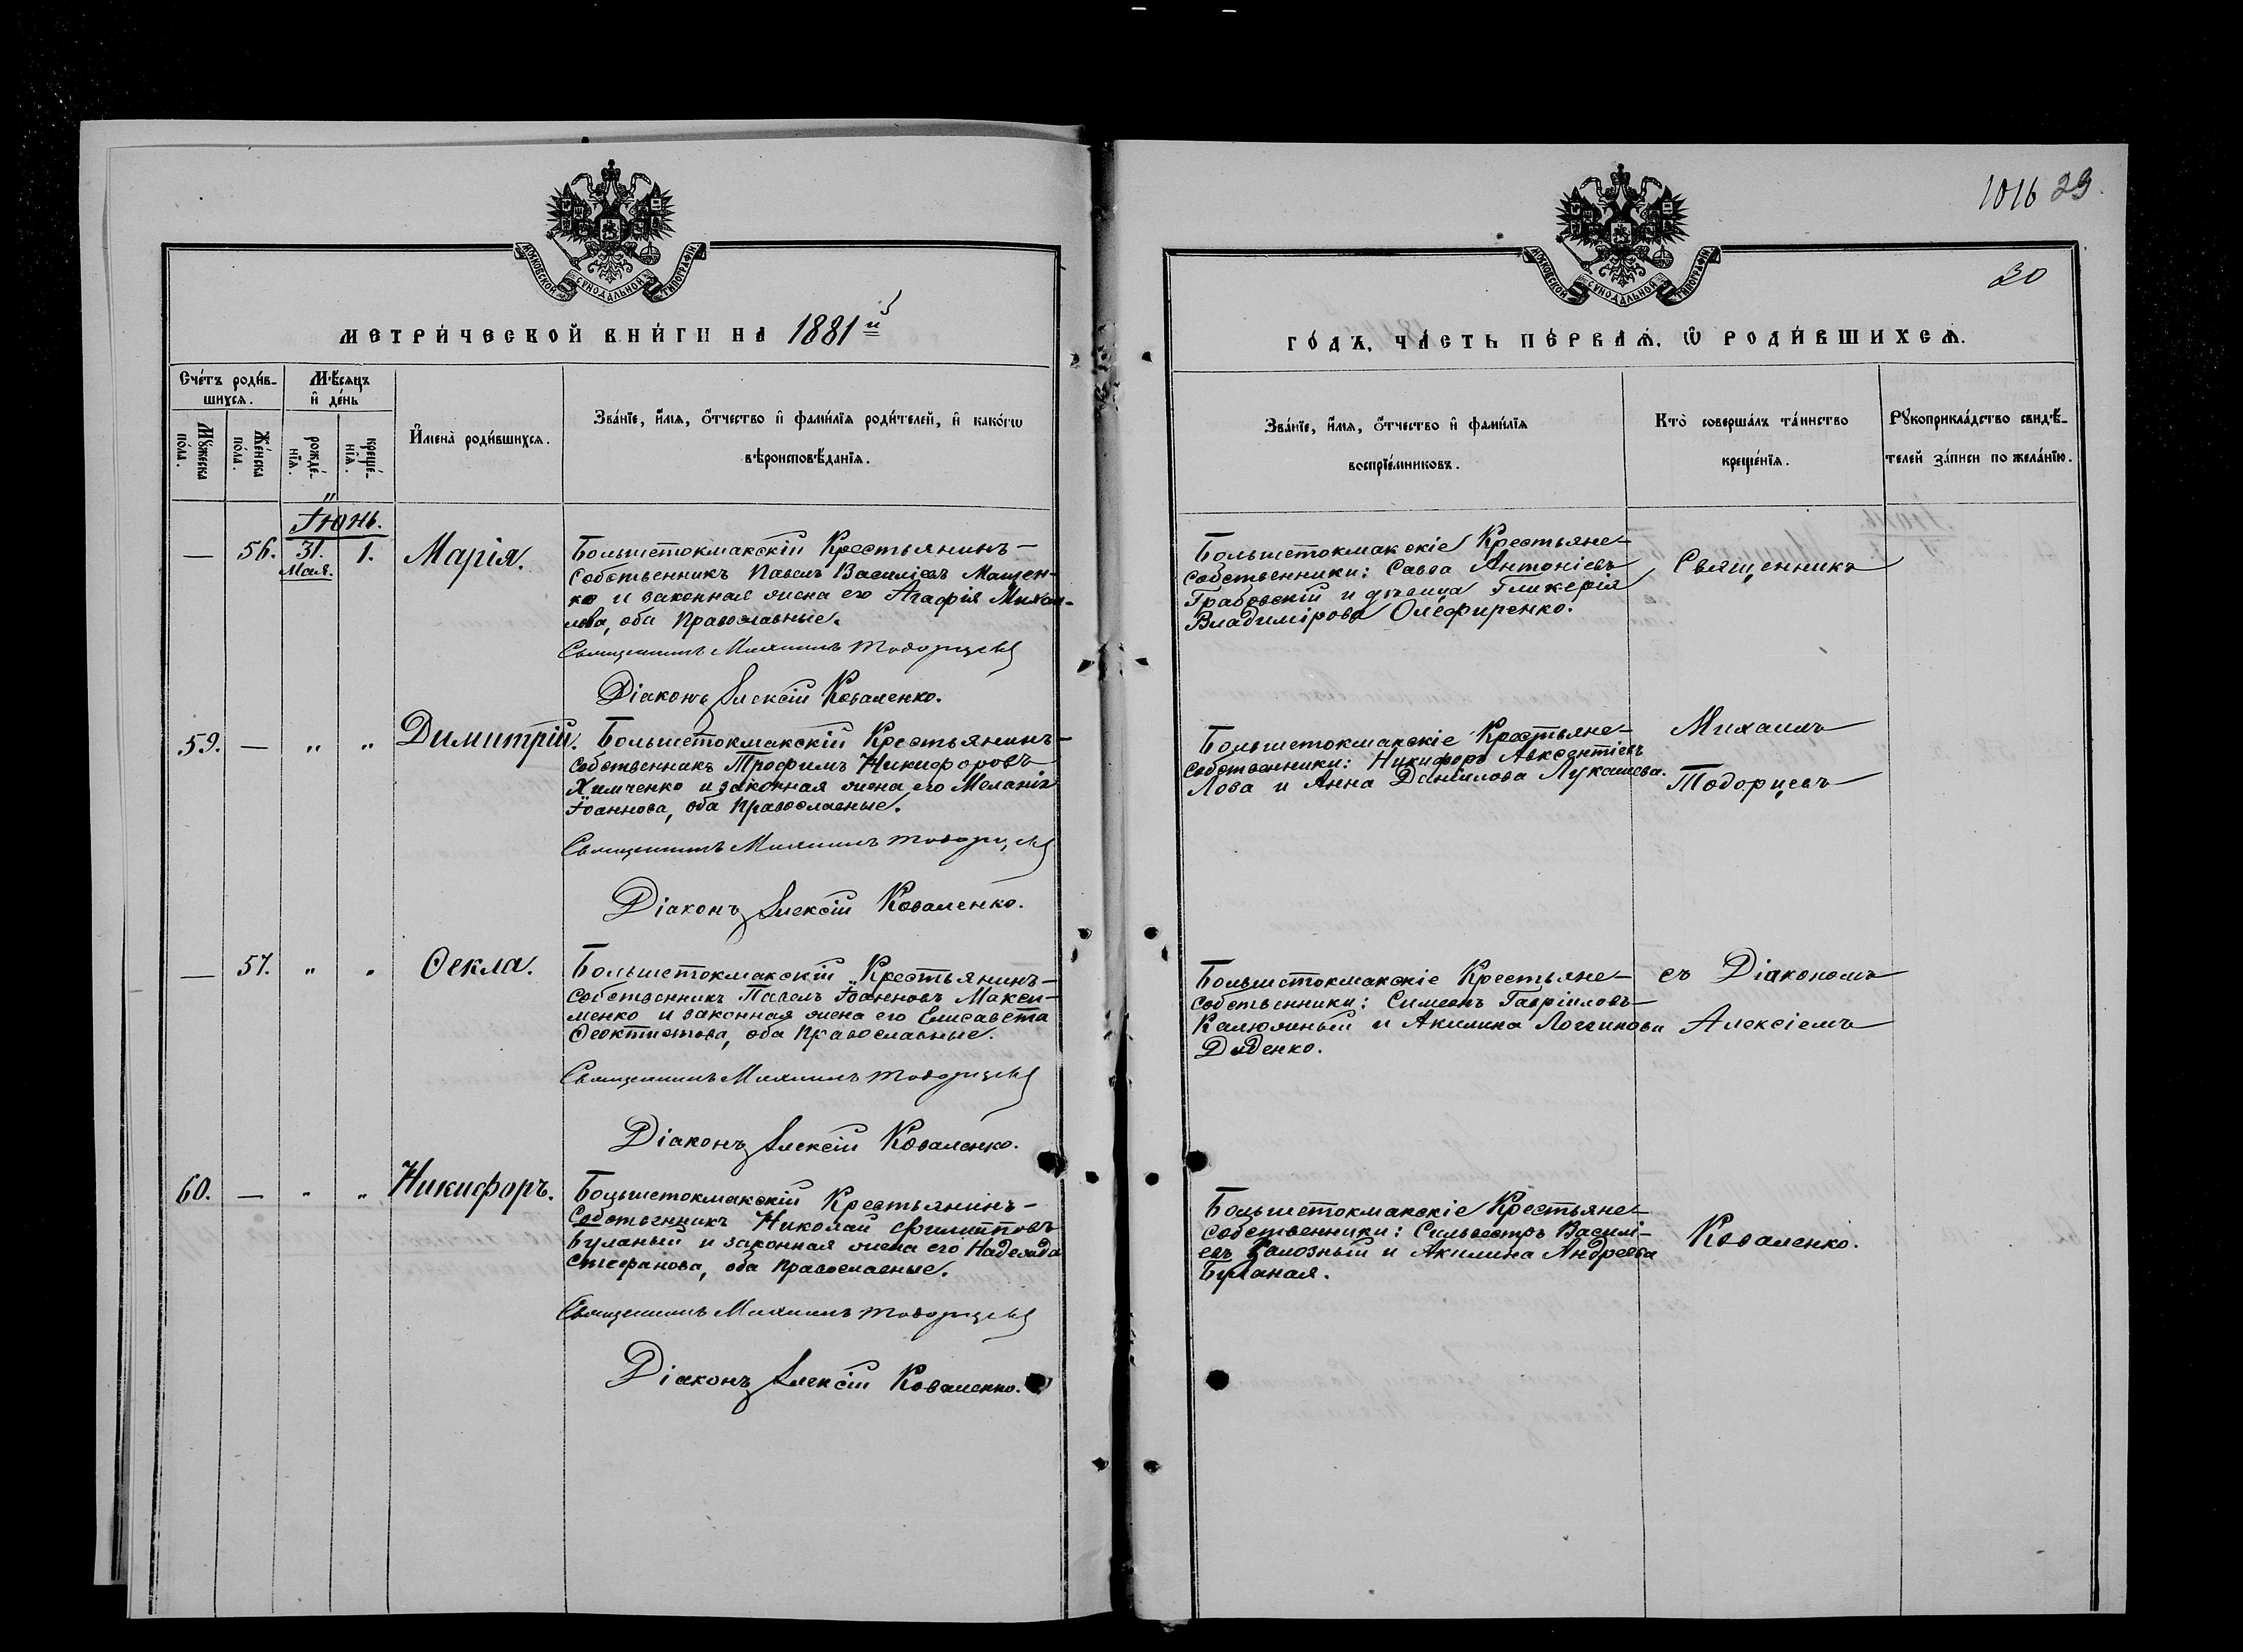 1016 29.
30
МОСКОВСКОЙ СУНОДАЛЬНОЙ ТИПОГРАФІИ
МОСКОВСКОЙ СУНОДАЛЬНОЙ ТИПОГРАФІИ
МЕТРИ́ЧЕСКОЙ КНИ́ГИ НА 1881й
ГО́ДЪ, ЧА́СТЬ ПЕ́РВАѦ, Ѽ РОДИ́ВШИХСѦ.
Счетъ родив-
шихсѧ.
Мѣсѧцъ
и день
Мужеска
пола.
Женска
пола.
рожде-
нїѧ.
креще-
нїѧ.
Имена родившихсѧ.
Званїе, имѧ, отчество и фамилїѧ родителей, и какогѡ
вѣроисповѣданїѧ.
Званїе, имѧ, отчество и фамилїѧ
воспрїемниковъ.
Кто совершалъ таинство
крещенїѧ.
Рукоприкладство свидѣ-
телей записи по желанїю.
Іюнь.
— 56. 31. 1. Марія.
Мая.
Большетокмакскій Крестьянинъ-
собственникъ Павелъ Василіевъ Мащен-
ко и законная жена его Агафія Михаи-
лова, оба Православные.
Священникъ Михаилъ Тодорцевъ
Діаконъ Алексій Коваленко.
Большетокмакскіе Крестьяне-
собственники: Савва Антоніевъ
Грабовскій и дѣвица Гликерія
Владимірова Олефиренко.
Священникъ
59. — „ „ Димитрій.
Большетокмакскій Крестьянинъ-
собственникъ Трофимъ Никифоровъ
Химченко и законная жена его Меланія
Іоаннова, оба Православные.
Священникъ Михаилъ Тодорцевъ
Діаконъ Алексій Коваленко.
Большетокмакскіе Крестьяне-
собственники: Никифоръ Авксентіевъ
Лова и Анна Даніилова Лукашева.
Михаилъ
Тодорцевъ
— 57. „ „ Ѳекла.
Большетокмакскій Крестьянинъ-
собственникъ Павелъ Іоанновъ Макси-
менко и законная жена его Елисавета
Ѳеоктистова, оба Православные.
Священникъ Михаилъ Тодорцевъ
Діаконъ Алексій Коваленко.
Большетокмакскіе Крестьяне-
собственники: Симеонъ Гавріиловъ
Калюжный и Акилина Логгинова
Диденко.
съ Діакономъ
Алексіемъ
60. — „ „ Никифоръ.
Большетокмакскій Крестьянинъ-
Собственникъ Николай Филипповъ
Буланый и законная жена его Надежда
Стефанова, оба Православные.
Священникъ Михаилъ Тодорцевъ
Діаконъ Алексій Коваленко.
Большетокмакскіе Крестьяне-
собственники: Сильвестръ Василі-
евъ и Акилина Андреева
Буланая.
Коваленко.